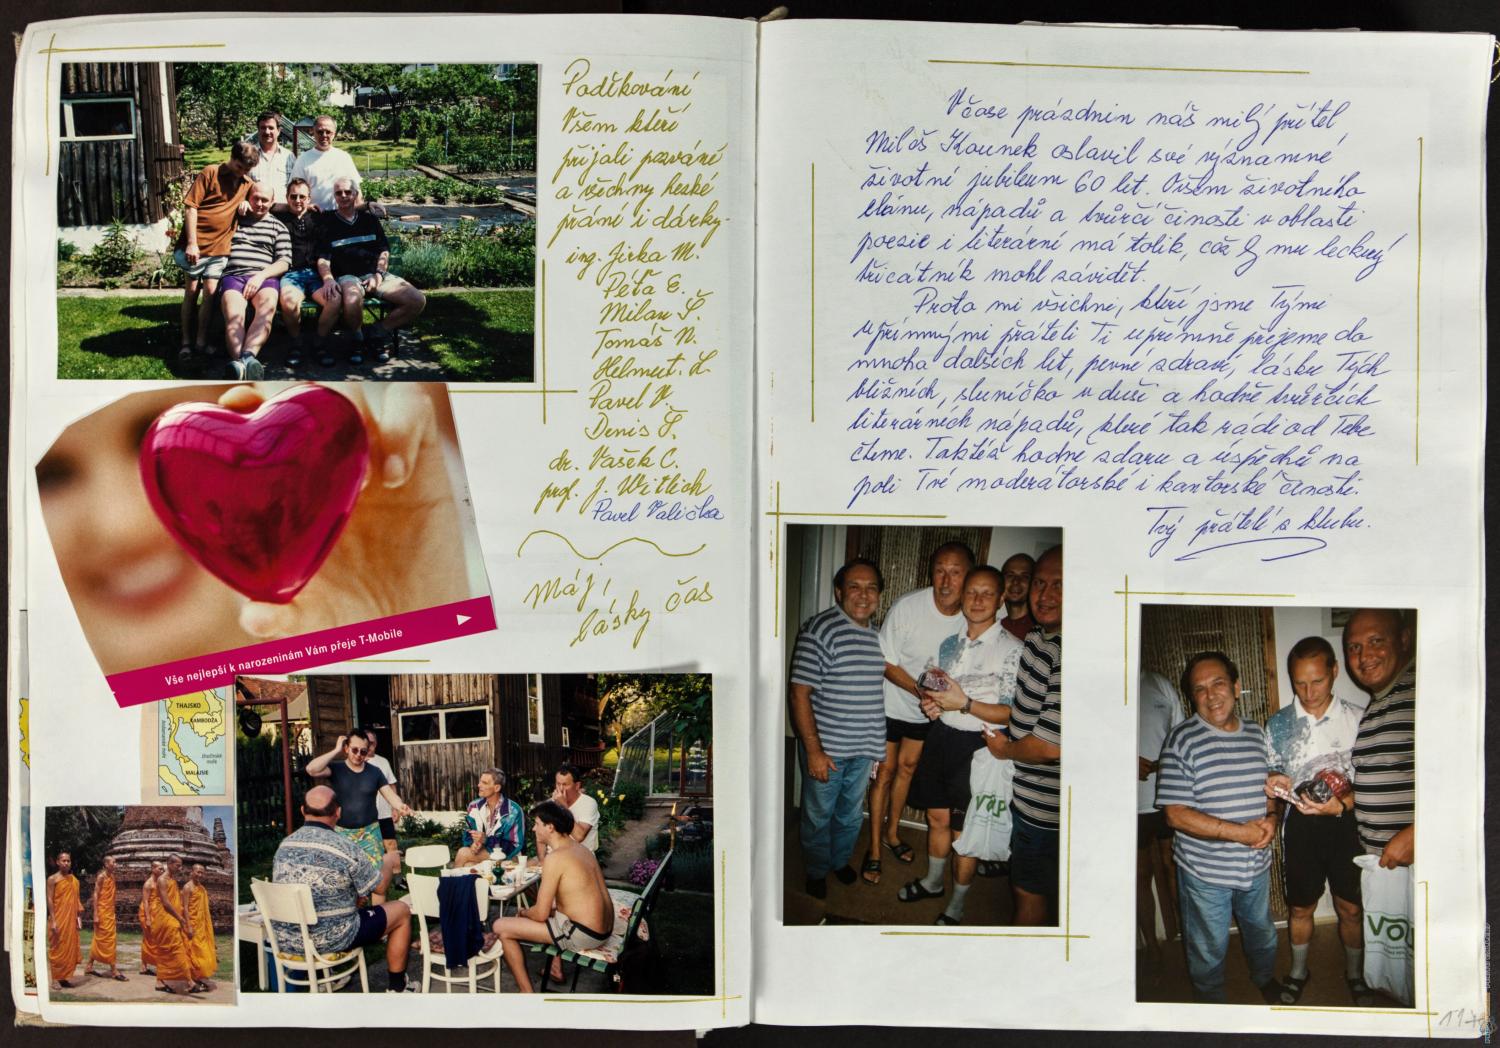 Poděkování
Všem kteří
přijali pozvání
a všechny heské
přání i dárky.
ing. Jirka M.
Péťa E.
Milan Š.
Tomáš N.
Helmut. L.
Pavel V.
Denis Š.
dr. Vašek C.
prof. J. Witlich
Pavel Valička
Máj,
lásky čas
Vše nejlepší k narozeninám Vám přeje T-Mobile
THAJSKO
KAMBODŽA
MALAJSIE
V čase prázdnin náš milý přítel
Miloš Kounek oslavil své významné
životní jubileum 60 let. Ovšem životného
elánu, nápadů a tvůrčí činosti v oblasti
poezie i literární má tolik, což by mu leckerý
třicátník mohl závidět.
Proto mi všichni, kteří jsme Tvými
upřímnými přáteli Ti upřímně přejeme do
mnoha dalších let, pevné zdraví, lásku Tvých
bližních, sluníčko v duši a hodně tvůrčích
literárních nápadů, které tak rádi od Tebe
čteme. Taktéž hodně zdaru a úspěchů na
poli Tvé moderátorské i kantorské činosti.
Tvý přátelé z klubu.